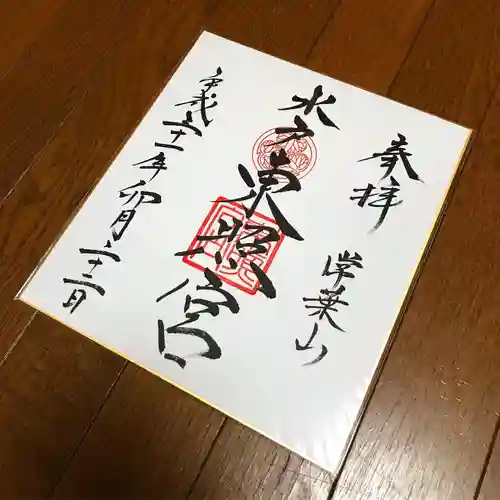 奉拝
常葉山
水戸
東照宮
平成三十一年卯月二十二日